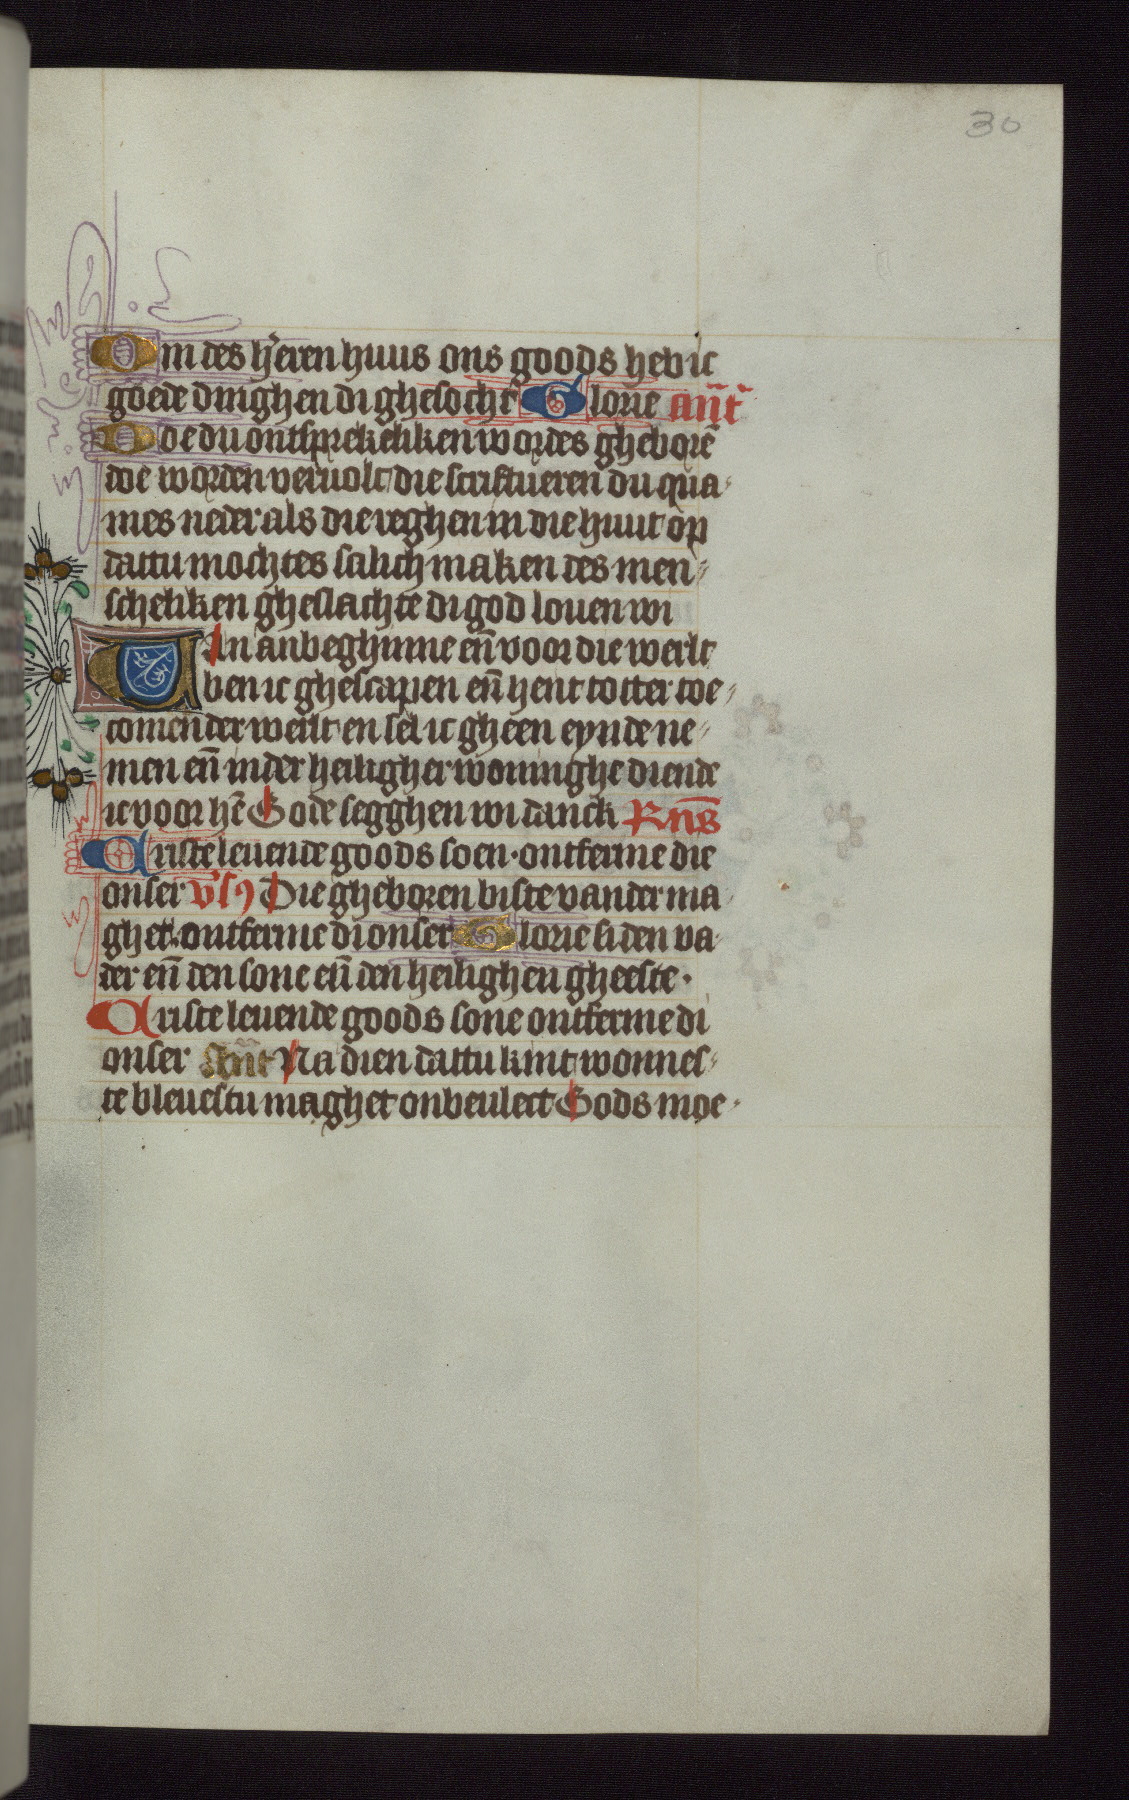 30
Om des heren huus ons goods heb ic
goede dinghen di ghesocht Glorie ant̄
Doe du ontsprekeliken wordes gheborē
doe worden vervolt die scriftueren du qua
mes neder als die reghen in die huut op
dattu mochtes salich maken des men
scheliken gheslachte di god loven wi
Uan anbeghinne eñ voor die werlt
ben ic ghescapen eñ hent totter toe
comender werlt en sel ic gheen eynde ne
men eñ in der heiligher woninghe diende
ic voor hē Gode segghen wi danck Rn̄s
Criste levende goods soen · ontferme die
onser v̓s Die gheboren biste vander ma
ghet · ontferme di onser Glorie si den va
der eñ den sone eñ den heilighen gheeste ·
Criste levende goods sone ontferme di
onser Ant̄ Na dien dattu kint wonnes
te blevestu maghet onbevlect Gods moe